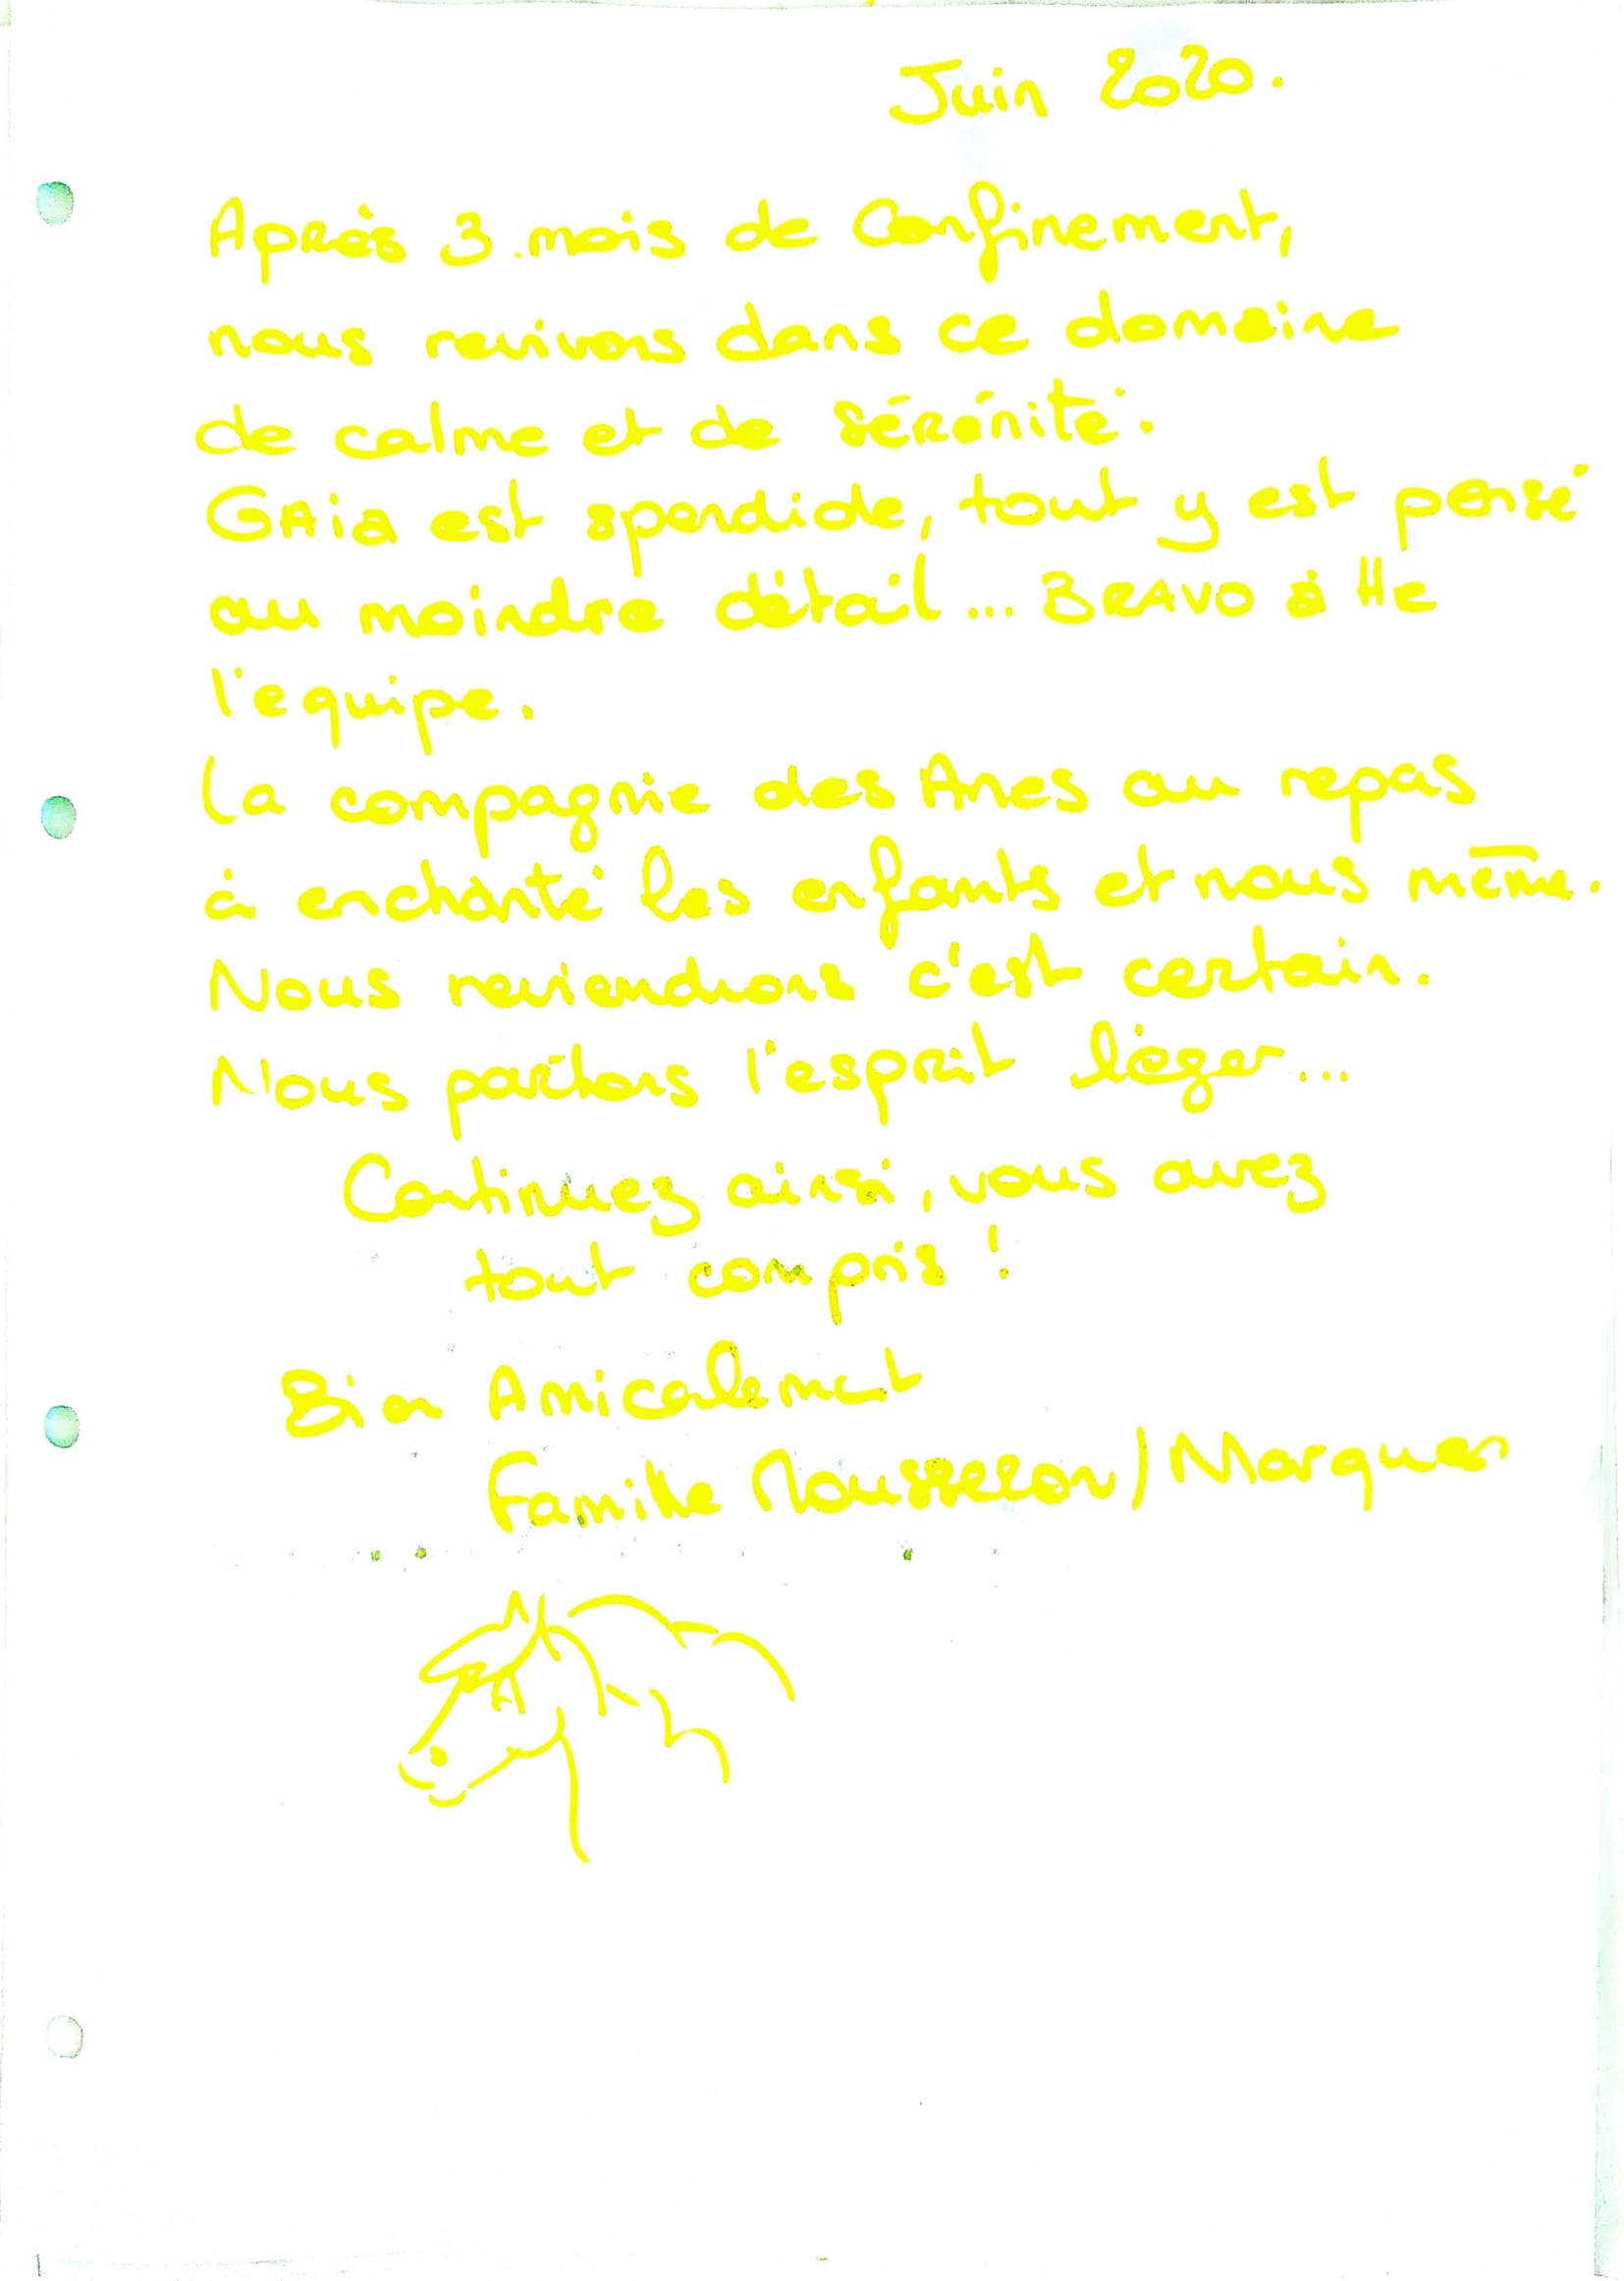 Juin 2020.
Après 3 mois de Confinement,
nous revivons dans ce domaine
de calme et de sérénité.
GAia est spendide, tout y est pensé
au moindre détail... BRAVO à tte
l'equipe.
La compagnie des Anes au repas
à enchanté les enfants et nous même.
Nous reviendrons c'est certain.
Nous partons l'esprit léger...
Continuez ainsi, vous avez
tout compris !
Bien Amicalement
Famille / Marques